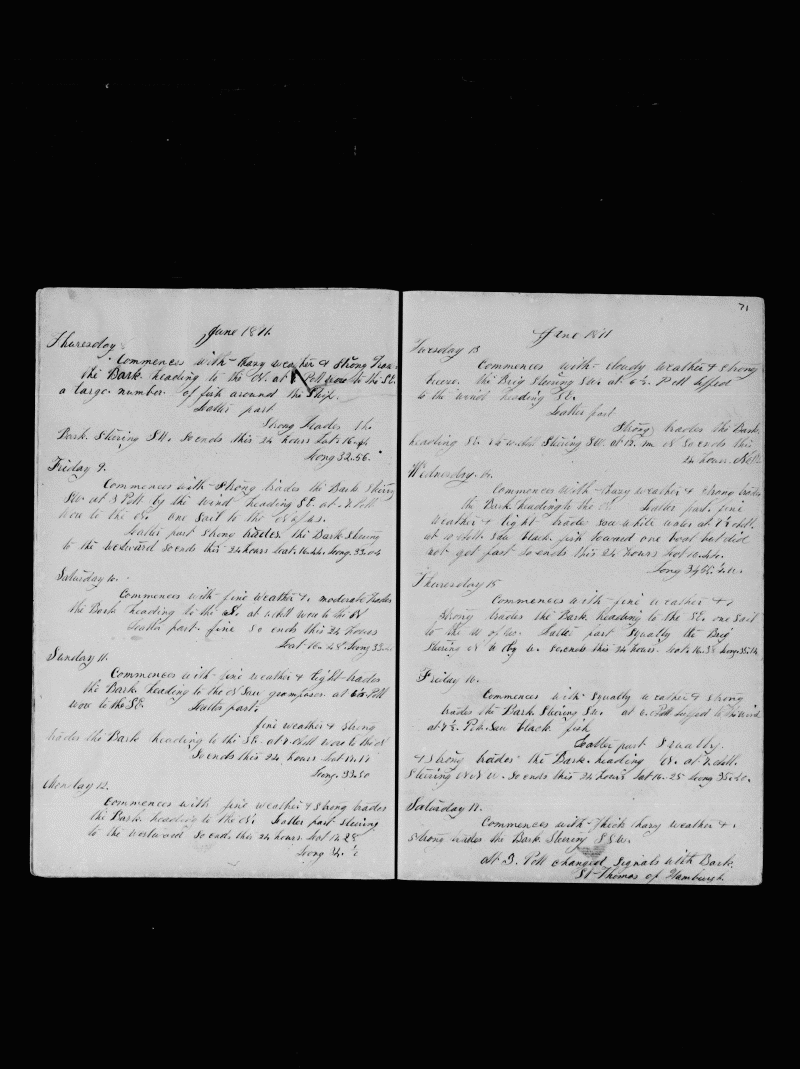 June 1871
Thuresday
Commences with thazy weather & strong trades
the Bark heading to the N. at P.M wore to the SE.
a large number of fish around the ship.
Latter part
Strong trades the
Bark steering SW. So ends this 24 hours Lat. 16.
Long 32.56.
Friday 9.
Commences with strong trades the Bark steering
SW. at 3 P.M by the wind heading SE. at P.M
wore to the N. one sail to the
Latter part strong trades. the Bark stering
to the westward so ends this 24 hours Lat. 16.44. Long. 33.04
Saturday 10.
Commences with fine weather & moderate trades
the Bark heading to the S. at P.M wore to the N
Latter part fine so ends this 24 hours
Lat 16. Long 33.
Sunday 11.
Commences with fine weather & light trades
the Bark heading to the N Saw grampuses. at P.M
wore to the SE. Latter part.
fine weather & strong
trades the Bark heading to the SE. at A.M wore to the N
So ends this 24 hours Lat 17.17
Long. 33.50
Monday 12.
Commences with fine weather & strong trades
the Bark heading to the N. Latter part stering
to the westward so ends this 24 hours. Lat 17.28
Long 34.
71
June 1871
Tuesday 13
Commences with cloudy weather & strong
the Brig stering SW. at 6 1/2 P.M luffed
to the wind heading SE.
Latter part
Strong trades the Bark
heading SE. stering SW. at 12. m. So ends this
24 hours.
Wednesday 14.
Commences with thazy weather & strong trades
the Bark heading to the Latter part fine
weather & light trades saw white water at A.M.
at A.M. saw black fish lowered one boat but did
not get fast so ends this 24 hours Lat
Long
Thuresday 15
Commences with fine weather &
strong trades the Bark heading to the SE. one sail
to the Latter part squally the Brig
stering by W. So ends this 24 hours. Lat. 16.38 Long. 35.14
Friday 16.
Commences with squally weather & strong
trades the Bark stering SW. at 6. P.M luffed to the wind
at 7 1/2 P.M. Saw black fish
Latter part squally.
& strong trades the Bark heading N. at A.M.
stering W. So ends this 24 hours Lat 16.25 Long 35.20.
Saturday 17.
Commences with thick thazy weather &
strong trades the Bark stering SSW.
At 3. P.M changed signals with Bark.
St Thomas of Hamburgh